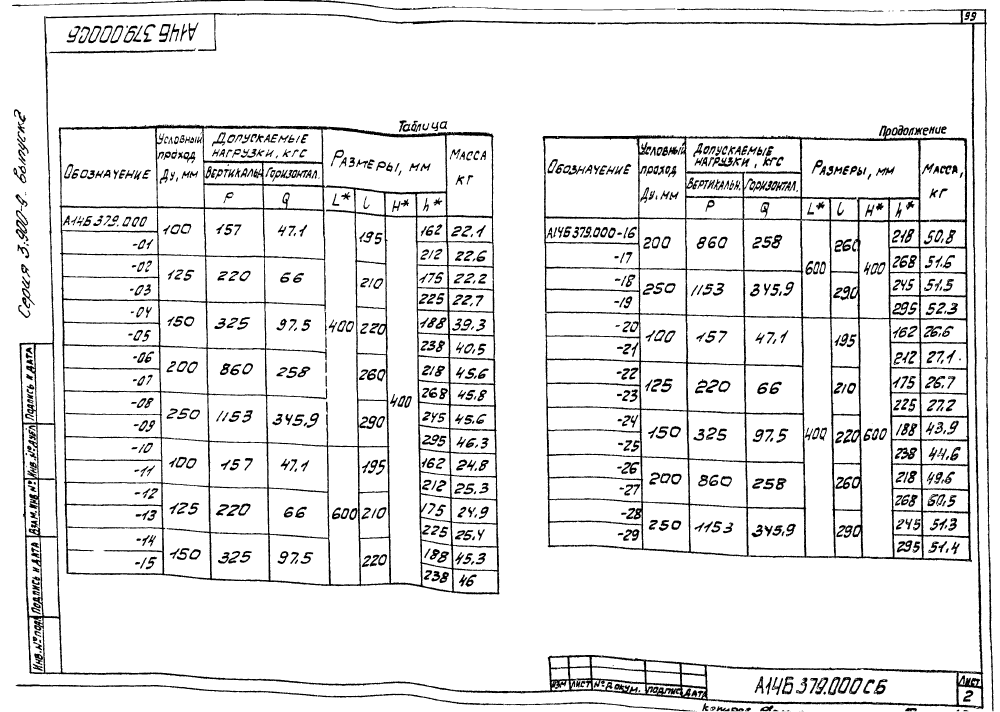 99
А14Б 379.000СБ
Серия 3.900-9. Выпуск 2
Таблица
Обозначение | Условный проход Ду, мм | Допускаемые нагрузки, кгс | Размеры, мм | Масса кг
Вертикальн. P | Горизонтал. Q | L* | l | H* | h*
А14Б379.000 | 100 | 157 | 47.1 | 400 | 195 | 400 | 162 | 22.1
-01 | 212 | 22.6
-02 | 125 | 220 | 66 | 210 | 175 | 22.2
-03 | 225 | 22.7
-04 | 150 | 325 | 97.5 | 220 | 188 | 39.3
-05 | 238 | 40.5
-06 | 200 | 860 | 258 | 260 | 218 | 45.6
-07 | 268 | 45.8
-08 | 250 | 1153 | 345.9 | 290 | 245 | 45.6
-09 | 295 | 46.3
-10 | 100 | 157 | 47.1 | 600 | 195 | 162 | 24.8
-11 | 212 | 25.3
-12 | 125 | 220 | 66 | 210 | 175 | 24.9
-13 | 225 | 25.4
-14 | 150 | 325 | 97.5 | 220 | 188 | 45.3
-15 | 238 | 46
Продолжение
Обозначение | Условный проход Ду, мм | Допускаемые нагрузки, кгс | Размеры, мм | Масса, кг
Вертикальн. P | Горизонтал. Q | L* | l | H* | h*
А14Б379.000-16 | 200 | 860 | 258 | 600 | 260 | 400 | 218 | 50.8
-17 | 268 | 51.6
-18 | 250 | 1153 | 345.9 | 290 | 245 | 51.5
-19 | 295 | 52.3
-20 | 100 | 157 | 47.1 | 400 | 195 | 600 | 162 | 26.6
-21 | 212 | 27.1
-22 | 125 | 220 | 66 | 210 | 175 | 26.7
-23 | 225 | 27.2
-24 | 150 | 325 | 97.5 | 220 | 188 | 43.9
-25 | 238 | 44.6
-26 | 200 | 860 | 258 | 260 | 218 | 49.6
-27 | 268 | 50.5
-28 | 250 | 1153 | 345.9 | 290 | 245 | 51.3
-29 | 295 | 51.4
Инв. № подл. | Подпись и дата | Взам. инв. № | Инв. № дубл. | Подпись и дата
Изм | Лист | № докум. | Подпис | Дата
А14Б 379.000 СБ
Лист
2